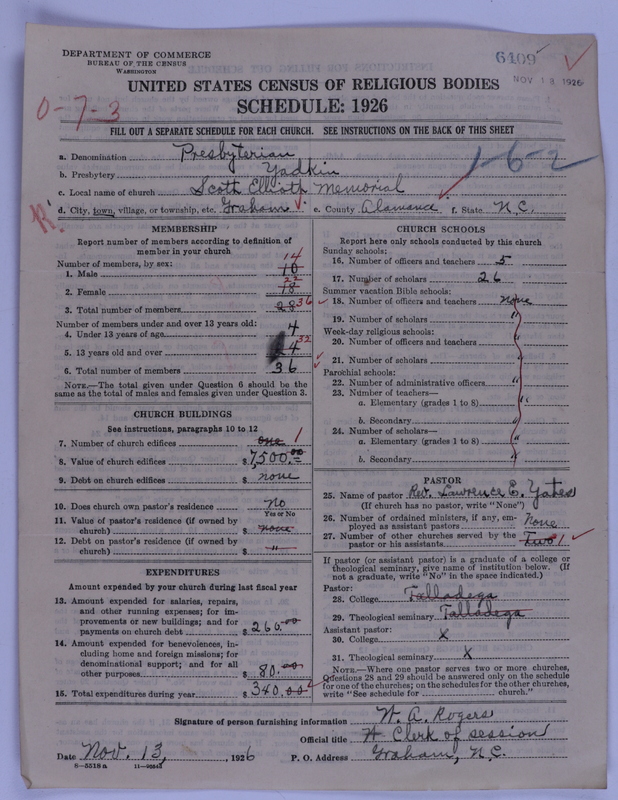 DEPARTMENT OF COMMERCE
BUREAU OF THE CENSUS
WASHINGTON
6409
NOV 13 1926
UNITED STATES CENSUS OF RELIGIOUS BODIES
SCHEDULE: 1926
0-7-3
FILL OUT A SEPARATE SCHEDULE FOR EACH CHURCH. SEE INSTRUCTIONS ON THE BACK OF THIS SHEET
a. Denomination Presbyterian
1-6-2
b. Presbytery Yadkin
c. Local name of church Scott Elliott Memorial
d. City, town, village, or township, etc. Graham e. County Alamance f. State N.C.
MEMBERSHIP
Report number of members according to definition of
member in your church
Number of members, by sex:
1. Male 10 14
2. Female 18 22
3. Total number of members 28 36
Number of members under and over 13 years old:
4. Under 13 years of age 4
5. 13 years old and over 24 32
6. Total number of members 36
NOTE.—The total given under Question 6 should be the
same as the total of males and females given under Question 3.
CHURCH BUILDINGS
See instructions, paragraphs 10 to 12
7. Number of church edifices One 1
8. Value of church edifices $7,500.00
9. Debt on church edifices $ none
10. Does church own pastor's residence No
Yes or No
11. Value of pastor's residence (if owned by
church) $ none
12. Debt on pastor's residence (if owned by
church) $ "
EXPENDITURES
Amount expended by your church during last fiscal year
13. Amount expended for salaries, repairs,
and other running expenses; for im-
provements or new buildings; and for
payments on church debt $ 260.00
14. Amount expended for benevolences, in-
cluding home and foreign missions; for
denominational support; and for all
other purposes $ 80.00
15. Total expenditures during year $ 340.00
CHURCH SCHOOLS
Report here only schools conducted by this church
Sunday schools:
16. Number of officers and teachers 5
17. Number of scholars 26
Summer vacation Bible schools:
18. Number of officers and teachers none
19. Number of scholars "
Week-day religious schools:
20. Number of officers and teachers "
21. Number of scholars "
Parochial schools:
22. Number of administrative officers "
23. Number of teachers—
a. Elementary (grades 1 to 8) "
b. Secondary "
24. Number of scholars—
a. Elementary (grades 1 to 8) "
b. Secondary "
PASTOR
25. Name of pastor Rev. Lawrence E. Yates
(If church has no pastor, write "None")
26. Number of ordained ministers, if any, em-
ployed as assistant pastors None
27. Number of other churches served by the
pastor or his assistants Two 1
If pastor (or assistant pastor) is a graduate of a college or
theological seminary, give name of institution below. (If
not a graduate, write "No" in the space indicated.)
Pastor:
28. College Talladega
29. Theological seminary Talladega
Assistant pastor:
30. College X
31. Theological seminary X
NOTE.—Where one pastor serves two or more churches,
Questions 28 and 29 should be answered only on the schedule
for one of the churches; on the schedules for the other churches,
write "See schedule for church."
Signature of person furnishing information W. A. Rogers
Official title Clerk of session
Date Nov. 13, 1926 P. O. Address Graham, N.C.
8—5518 a